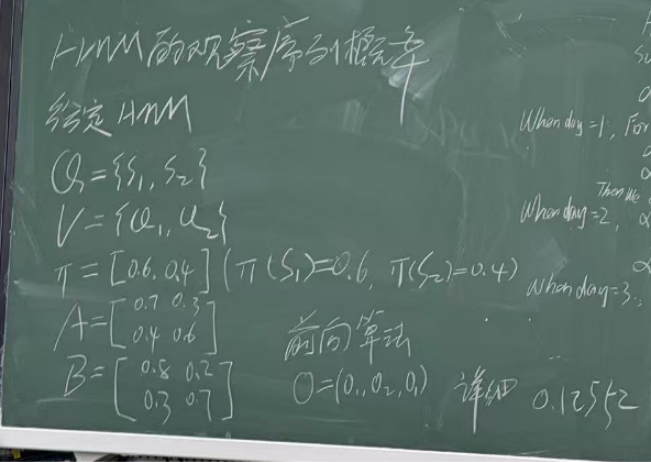 HMM的观察序列概率
给定 HMM
Q={S₁, S₂}
V={O₁, O₂}
π=[0.6, 0.4] (π(S₁)=0.6, π(S₂)=0.4)
A=[0.7 0.3
0.4 0.6]
B=[0.8 0.2
0.3 0.7]
前向算法
O=(O₁, O₂, O₁) 详细 0.12552
When day=1, For
Then We
When day=2,
When day=3,